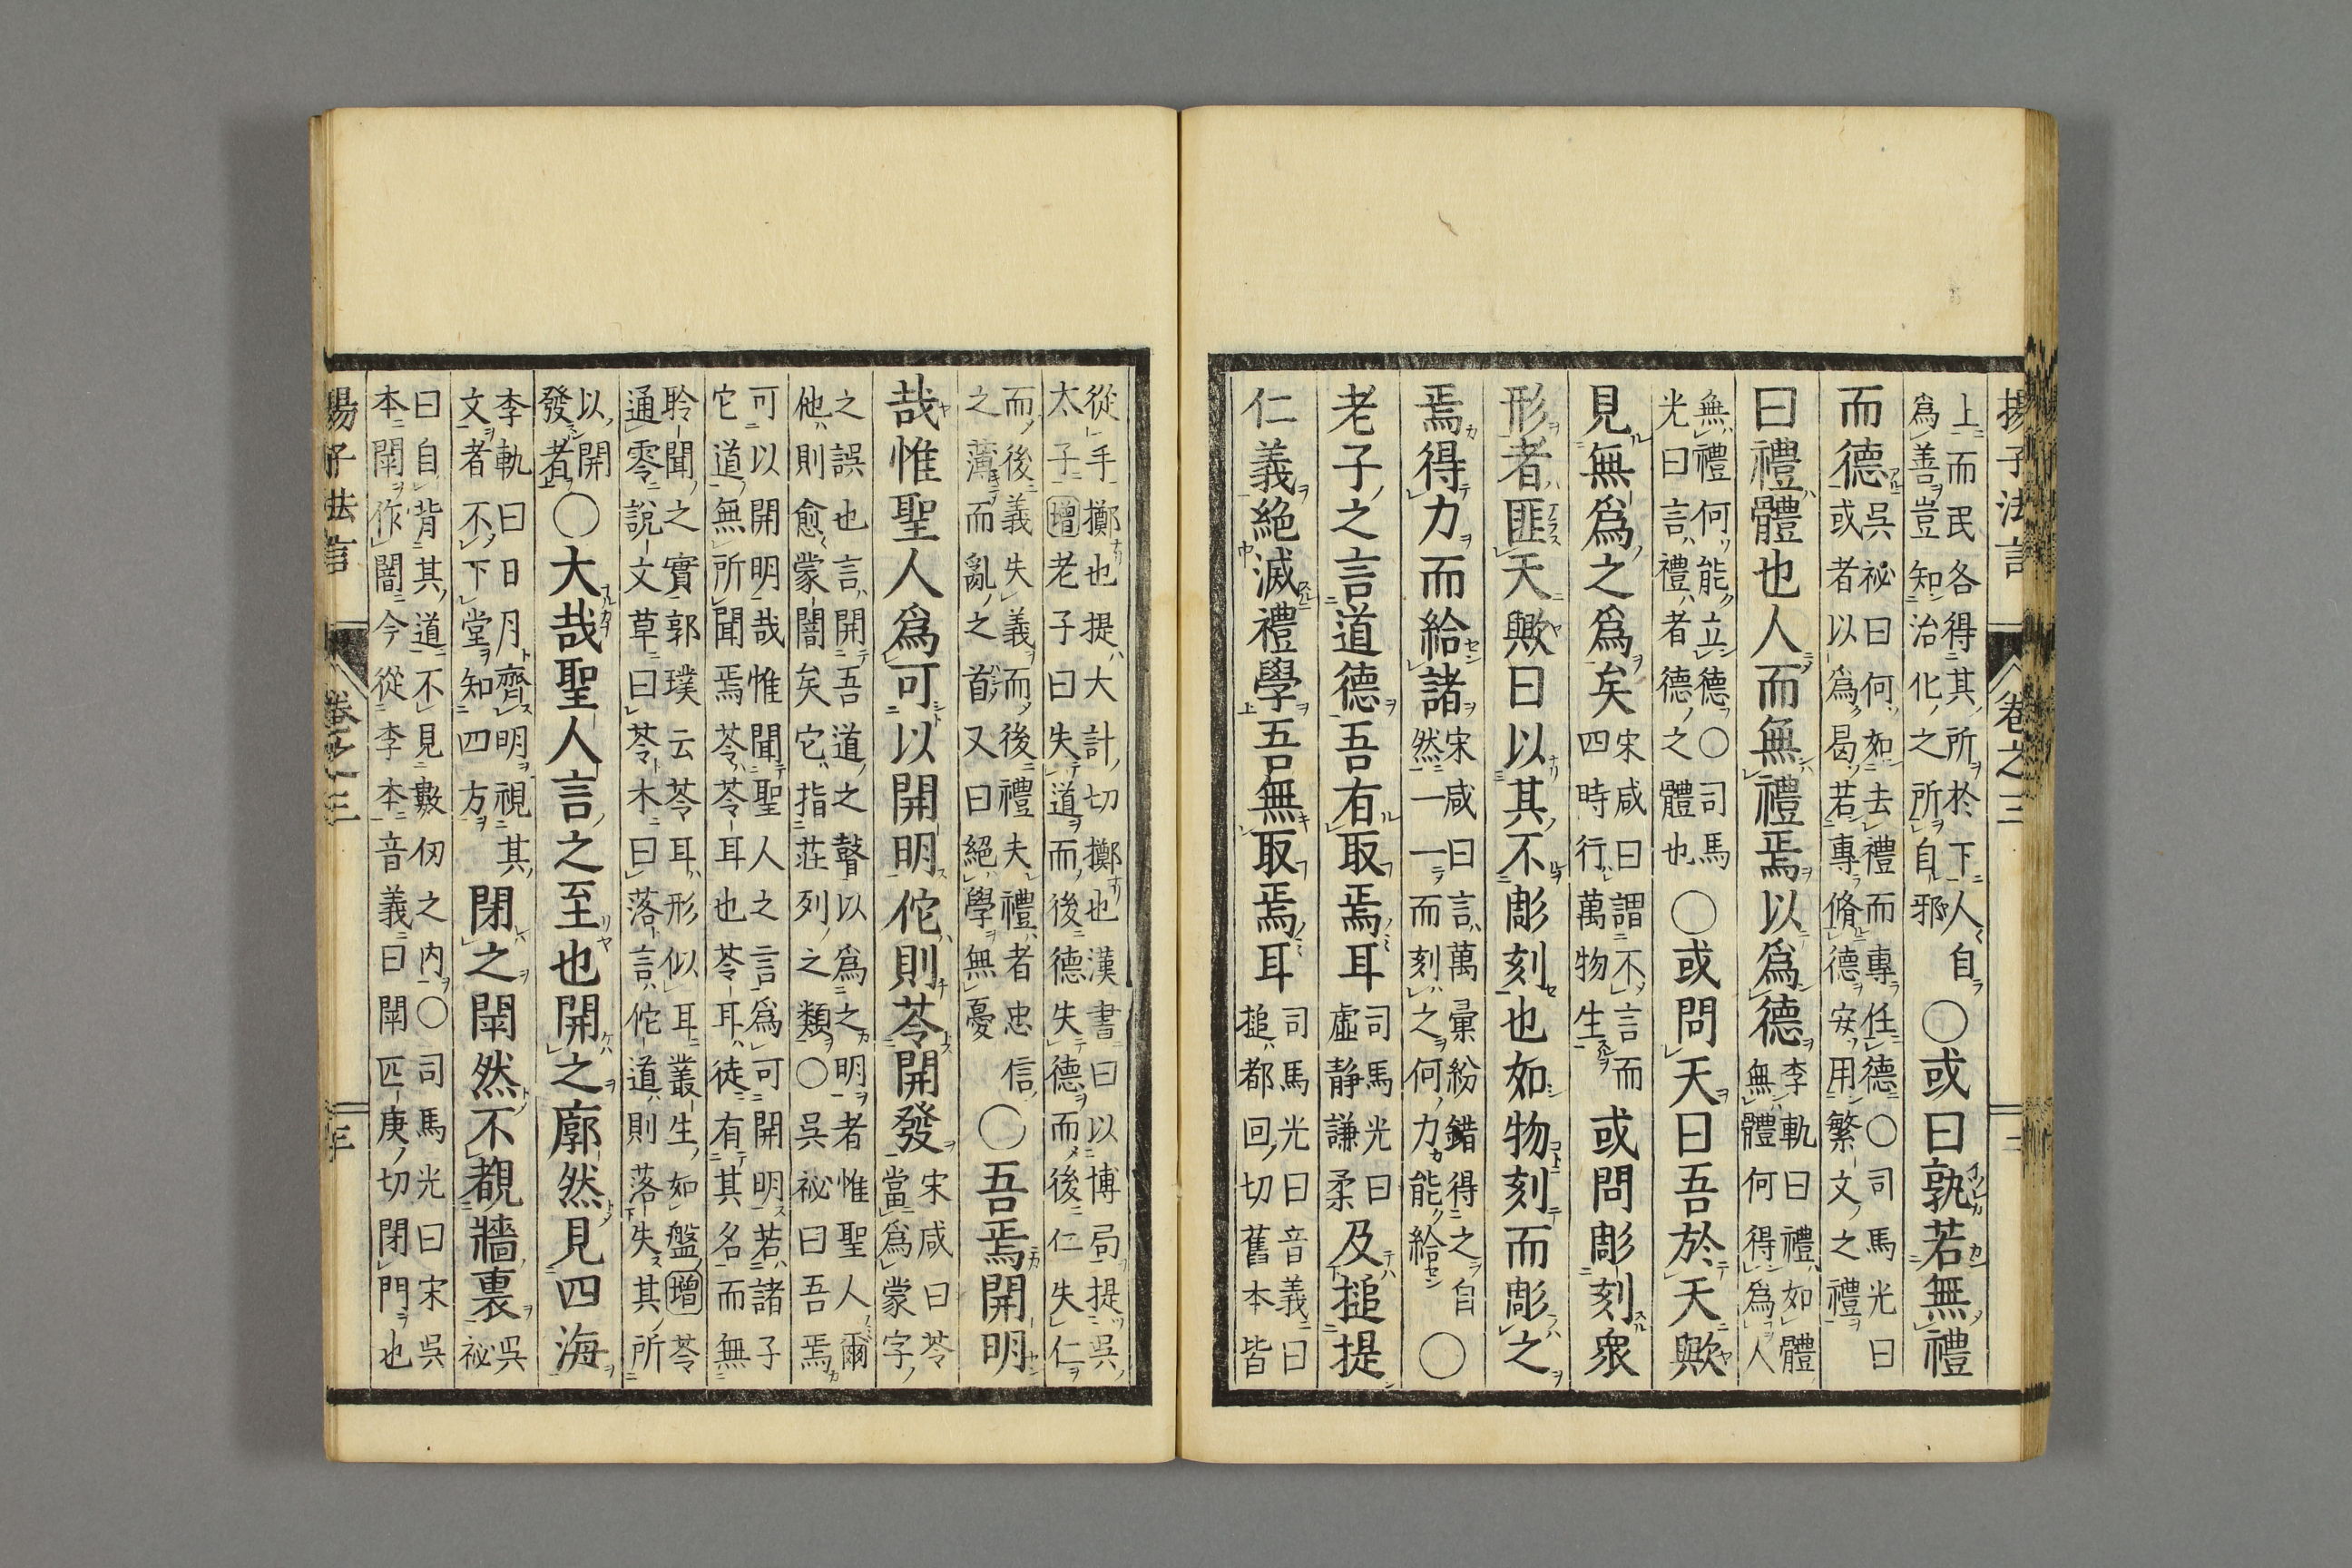 揚子法言　卷之三　二
上而民各得其所於下人自
爲善豈知治化之所自邪
○或曰孰若無禮
而德
呉祕曰何如去禮而專任德○司馬光曰
或者以爲曷若專脩德安用繁文之禮
曰禮體也人而無禮焉以爲德
李軌曰禮如體
無體何得爲人
無禮何能立德○司馬
光曰言禮者德之體也
○或問天曰吾於天歟
見無爲之爲矣
宋咸曰謂不言而
四時行萬物生
或問彫刻衆
形者匪天歟曰以其不彫刻也如物刻而彫之
焉得力而給諸
宋咸曰言萬彙紛錯得之自
然一一而刻之何力能給
○
老子之言道德吾有取焉耳
司馬光曰
虛静謙柔
及搥提
仁義絶滅禮學吾無取焉耳
司馬光曰音義曰
搥都回切舊本皆
從手擲也提大計切擲也漢書曰以博局提呉
太子增老子曰失道而後德失德而後仁失仁
而後義失義而後禮夫禮者忠信
之薄而亂之首又曰絶學無憂
○吾焉開明
哉惟聖人爲可以開明佗則苓開發
宋咸曰苓
當爲蒙字
之誤也言開吾道之瞽以爲之明者惟聖人爾
他則愈蒙闇矣它指莊列之類○呉祕曰吾焉
可以開明哉惟聞聖人之言爲可開明若諸子
它道無所聞焉苓苓耳也苓耳徒有其名而無
聆聞之實郭璞云苓耳形似耳叢生如盤增苓
通零說文草曰苓木曰落言佗道則落失其所
以開
發者
○大哉聖人言之至也開之廓然見四海
李軌曰日月齊明視其
文者不下堂知四方
閉之閛然不覩牆裏
呉
祕
曰自背其道不見數仞之内○司馬光曰宋呉
本閛作闇今從李本音義曰閛匹庚切閉門也
揚子法言　卷之三　三